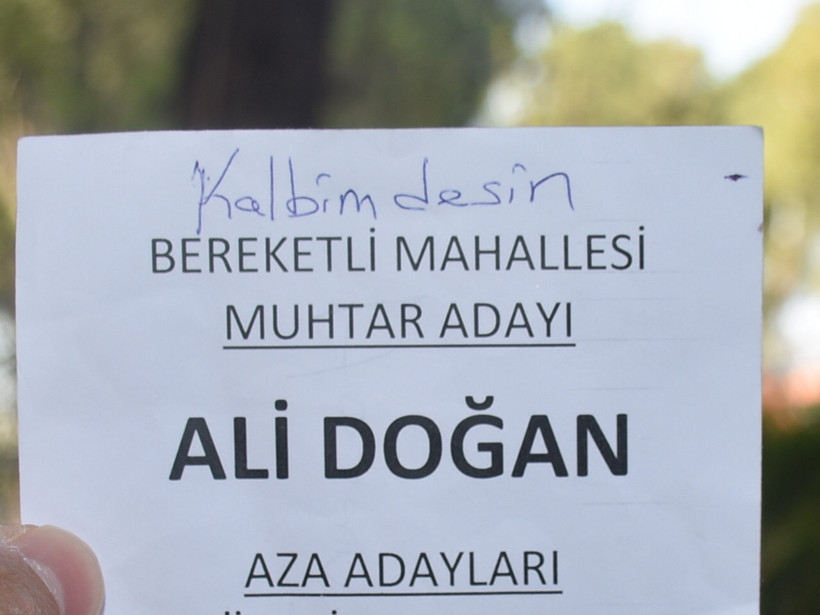 Kalbimdesin
BEREKETLİ MAHALLESİ
MUHTAR ADAYI
ALİ DOĞAN
AZA ADAYLARI